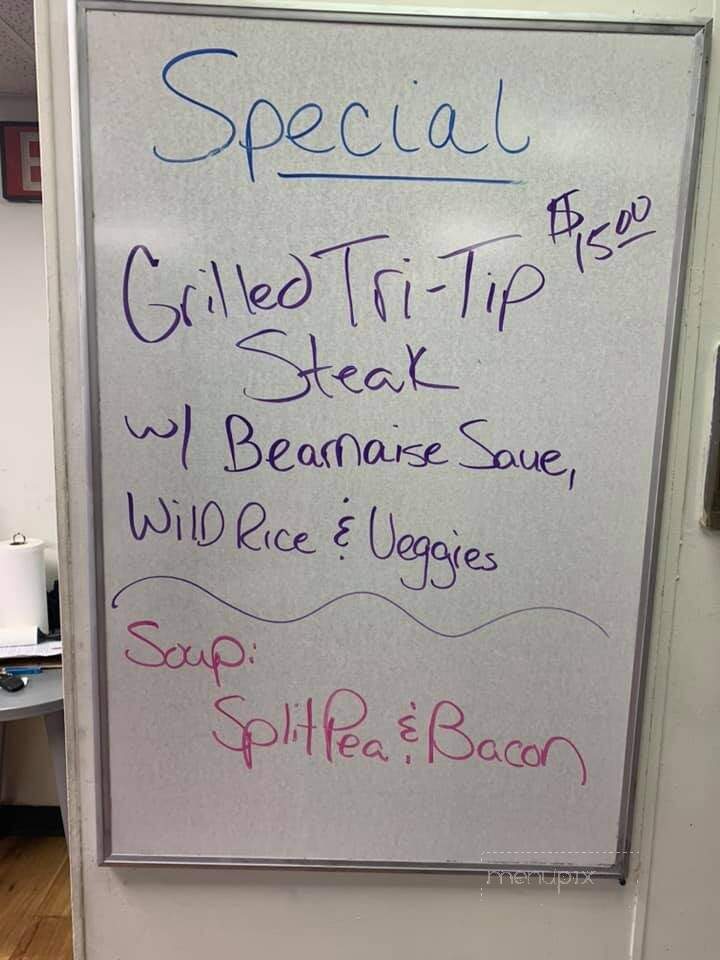 Special
$15.00
Grilled Tri-Tip
Steak
w/ Bearnaise Saue,
Wild Rice & Veggies
Soup:
Split Pea & Bacon
menupix
E